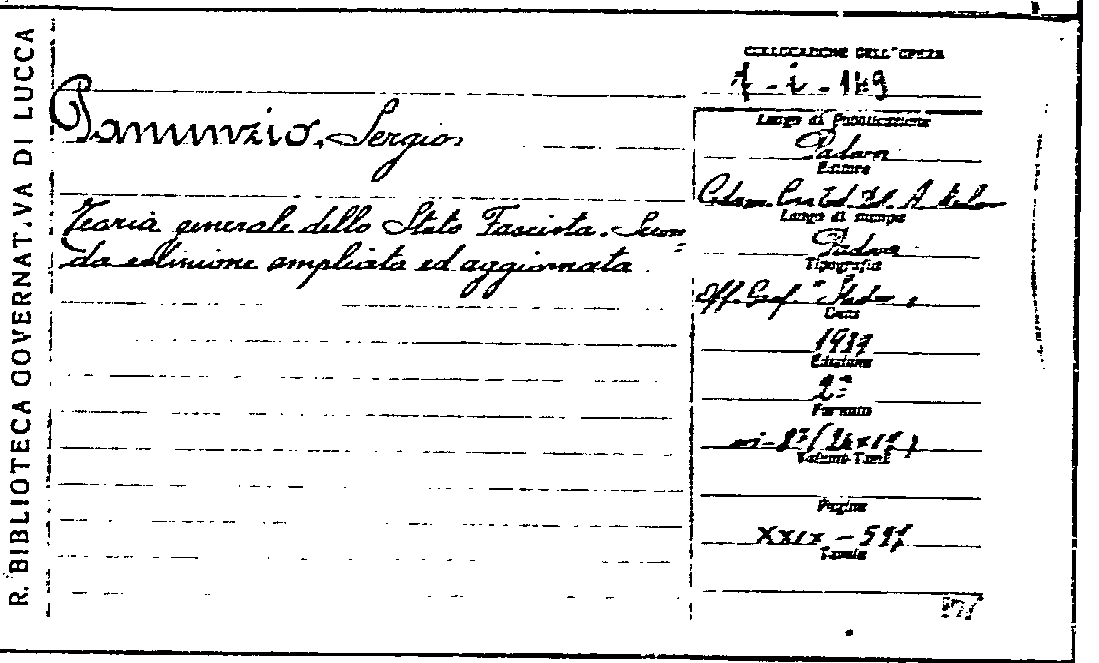 R. BIBLIOTECA GOVERNATIVA DI LUCCA
Panunzio, Sergio
Teoria generale dello Stato Fascista. Secon=
da edizione ampliata ed aggiornata.
COLLOCAZIONE DELL'OPERA
1 - i - 149
Luogo di Pubblicazione
Padova
Editore
Cedam. A.
Luogo di stampa
Padova
Tipografia
Off. Graf.
Data
1937
Edizione
2ª
Formato
Volume-Tomi
Pagine
XXIX - 597
Tavole